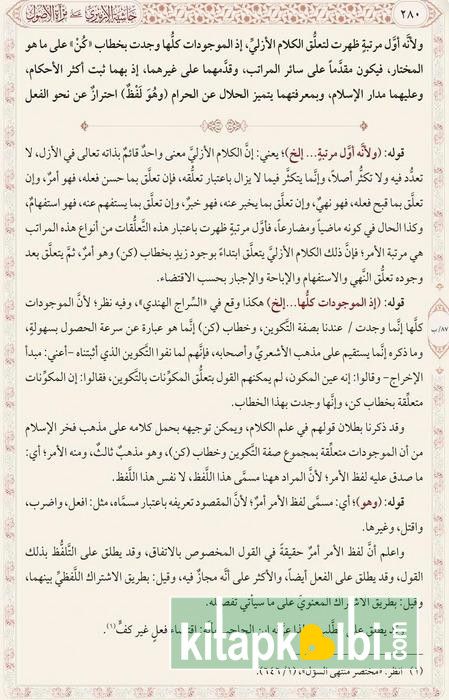 ٢٨٠
حاشية الإزميري على مرآة الأصول
ولأنَّه أوَّل مرتبةٍ ظهرت لتعلُّق الكلام الأزليِّ، إذ الموجودات كلُّها وجدت بخطاب «كُنْ» على ما هو
المختار، فيكون مقدَّماً على سائر المراتب، وقدَّمهما على غيرهما، إذ بهما ثبت أكثر الأحكام،
وعليهما مدار الإسلام، وبمعرفتهما يتميز الحلال عن الحرام (وهُوَ لَفْظٌ) احترازٌ عن نحو الفعل
قوله: (ولأنَّه أوَّل مرتبةٍ... إلخ)؛ يعني: إنَّ الكلام الأزليَّ معنى واحدٌ قائمٌ بذاته تعالى في الأزل، لا
تعدُّد فيه ولا تكثُّر أصلاً، وإنَّما يتكثَّر فيما لا يزال باعتبار تعلُّقه، فإن تعلَّق بما حسن فعله، فهو أمرٌ، وإن
تعلَّق بما قبح فعله، فهو نهيٌ، وإن تعلَّق بما يخبر عنه، فهو خبرٌ، وإن تعلَّق بما يستفهم عنه، فهو استفهامٌ،
وكذا الحال في كونه ماضياً ومضارعاً، فأوَّل مرتبةٍ ظهرت باعتبار هذه التَّعلُّقات من أنواع هذه المراتب
هي مرتبة الأمر؛ فإنَّ ذلك الكلام الأزليَّ يتعلَّق ابتداءً بوجود زيدٍ بخطاب (كن) وهو أمرٌ، ثمَّ يتعلَّق بعد
وجوده تعلُّق النَّهي والاستفهام والإباحة والإجبار بحسب الاقتضاء.
قوله: (إذ الموجودات كلُّها...إلخ) هكذا وقع في «السِّراج الهندي»، وفيه نظر؛ لأنَّ الموجودات
كلَّها إنَّما وجدت / عندنا بصفة التَّكوين، وخطاب (كن) إنَّما هو عبارة عن سرعة الحصول بسهولةٍ،
٨٧/ب
وما ذكره إنَّما يستقيم على مذهب الأشعريِّ وأصحابه، فإنَّهم لما نفوا التَّكوين الذي أثبتناه -أعني: مبدأ
الإخراج- وقالوا: إنه عين المكون، لم يمكنهم القول بتعلُّق المكوَّنات بالتَّكوين، فقالوا: إن المكوَّنات
متعلِّقة بخطاب كن، وإنَّها وجدت بهذا الخطاب.
وقد ذكرنا بطلان قولهم في علم الكلام، ويمكن توجيهه بحمل كلامه على مذهب فخر الإسلام
من أن الموجودات متعلِّقة بمجموع صفة التَّكوين وخطاب (كن)، وهو مذهبٌ ثالثٌ، ومنه الأمر؛ أي:
ما صدق عليه لفظ الأمر؛ لأنَّ المراد ههنا مسمَّى هذا اللَّفظ، لا نفس هذا اللَّفظ.
قوله: (وهو)؛ أي: مسمَّى لفظ الأمر أمرٌ؛ لأنَّ المقصود تعريفه باعتبار مسمَّاه، مثل: افعل، واضرب،
واقتل، وغيرها.
واعلم أنَّ لفظ الأمر أمرٌ حقيقةً في القول المخصوص بالاتفاق، وقد يطلق على التَّلفُّظ بذلك
القول، وقد يطلق على الفعل أيضاً، والأكثر على أنَّه مجازٌ فيه، وقيل: بطريق الاشتراك اللَّفظيِّ بينهما،
وقيل: بطريق الاشتراك المعنويِّ على ما سيأتي تفصيله.
وقد يطلق على الطَّلب، ولذا عرَّفه ابن الحاجب بأنه: اقتضاء فعلٍ غير كفٍّ(١).
(١) انظر: «مختصر منتهى السؤل»، (٦٤٦/١).
kitapkalbi.com